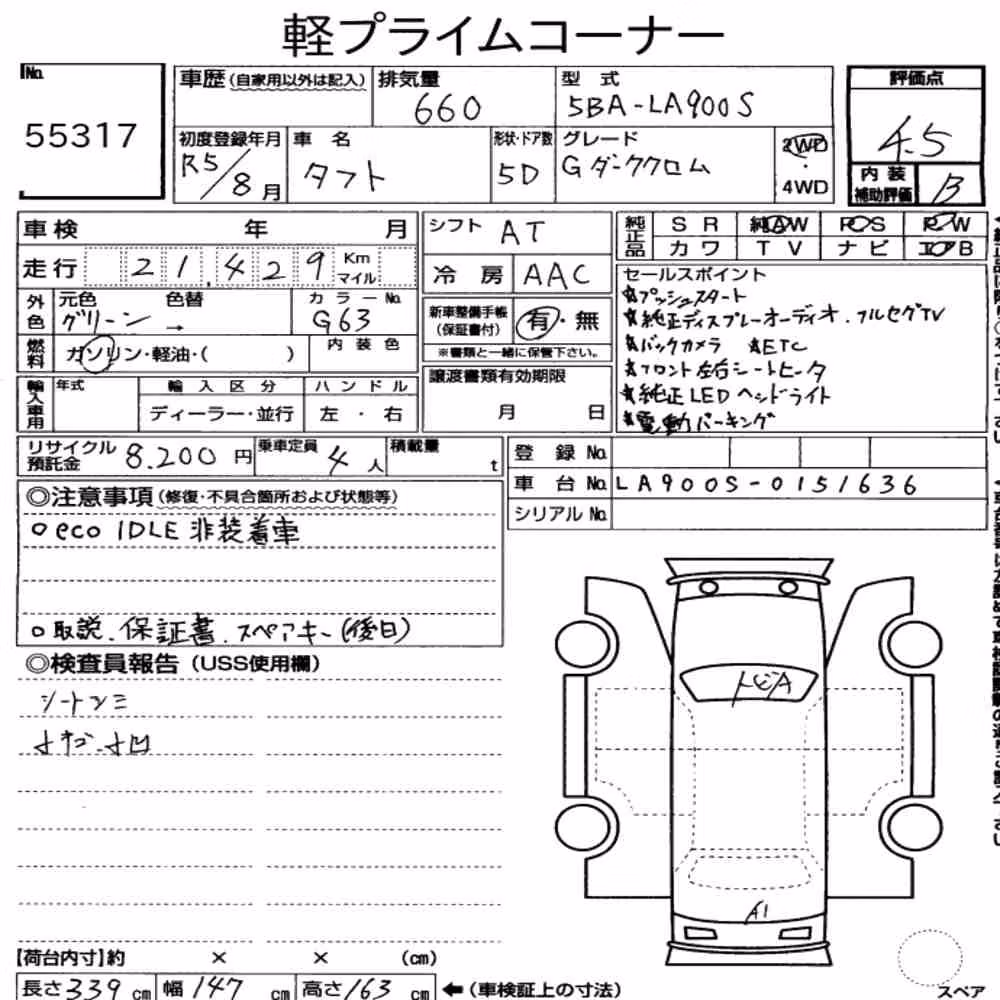 軽プライムコーナー
No.
55317
車歴(自家用以外は記入)
排気量
660
型式
5BA-LA900S
評価点
4.5
初度登録年月
R5/8月
車名
タフト
形状・ドア数
5D
グレード
Gダーククロム
2WD
・
4WD
内装
補助評価
B
車検 年 月
走行 21,429 Km
マイル
外色
元色 色替
グリーン →
カラーNo.
G63
燃料
ガソリン・軽油・( )
内装色
輸入車用
年式
輸入区分
ディーラー・並行
ハンドル
左・右
シフト AT
冷房 AAC
新車整備手帳
(保証書付)
有・無
※書類と一緒に保管下さい。
譲渡書類有効期限
月 日
純正品
SR 純AW P⃝S P⃝W
カワ TV ナビ エアB
セールスポイント
★プッシュスタート
★純正ディスプレーオーディオ.フルセグTV
★バックカメラ ★ETC
★フロント左右シートヒータ
★純正LEDヘッドライト
★電動パーキング
リサイクル
預託金
8.200円
乗車定員
4人
積載量
t
登録No.
車台No. LA900S-0151636
シリアルNo.
◎注意事項(修復・不具合箇所および状態等)
○eco IDLE 非装着車
○取説.保証書.スペアキー(後日)
◎検査員報告(USS使用欄)
シートシミ
オキズ.オ凹
A1
【荷台内寸】約 × × (cm)
長さ339cm 幅147cm 高さ163cm ←(車検証上の寸法)
スペア